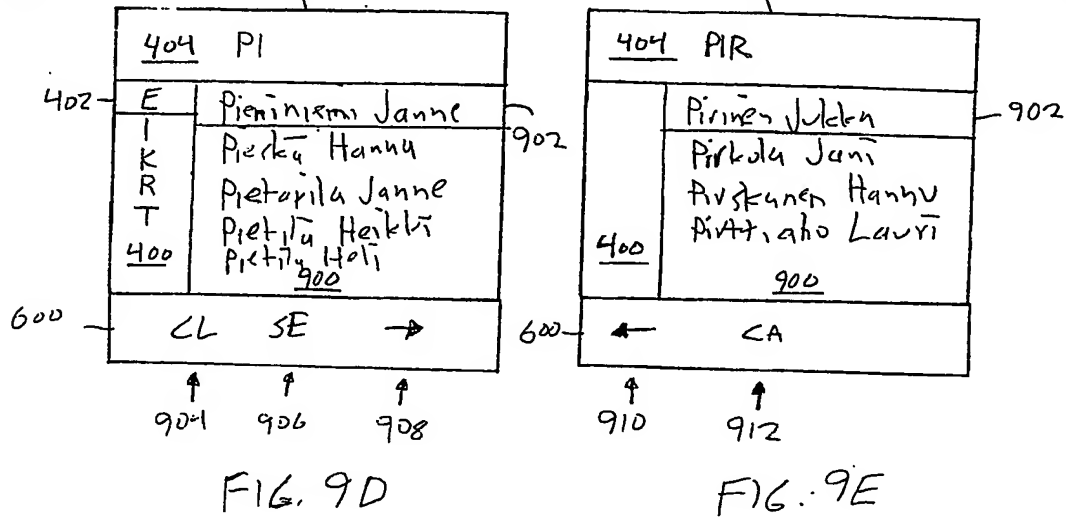 404 PI
402
E
I
K
R
T
400
Pieniniemi Janne
902
Pietarila Janne
Pietilä Heikki
900
600
CL SE →
904 906 908
FIG. 9D
404 PIR
Pirinen Jukka
902
Pirkola Jani
Pirskanen Hannu
Pirttiaho Lauri
400
900
600
← CA
910 912
FIG. 9E